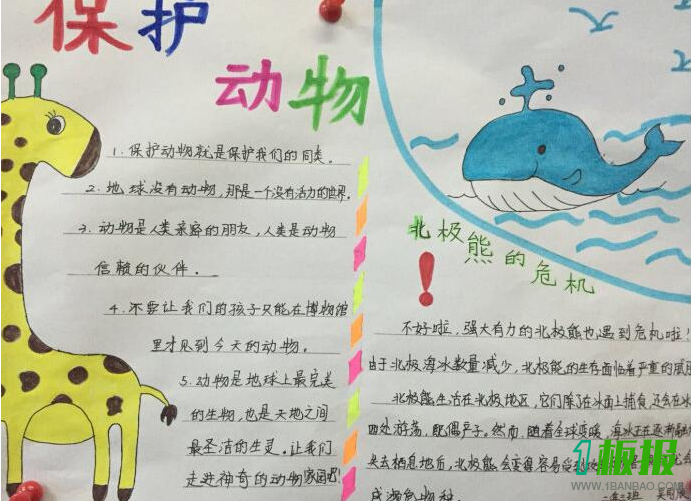 保护
动物
1.保护动物就是保护我们的同类。
2.地球没有动物,那是一个没有活力的世界。
3.动物是人类亲密的朋友,人类是动物
信赖的伙伴。
4.不要让我们的孩子只能在博物馆
里才见到今天的动物。
5.动物是地球上最完美
的生物,也是天地之间
最圣洁的生灵。让我们
走进神奇的动物家园吧!
北极熊的危机
!
不好啦,强大有力的北极熊也遇到危机啦!
由于北极海冰数量减少,北极熊的生存面临着严重的威胁
北极熊生活在北极地区,它们除了在冰面上捕食,还会在冰
四处游荡,配偶产子。然而,随着全球变暖,海冰正在逐渐
失去栖息地后,北极熊会变得容易受到
成濒危物种。
1板报
WWW.1BANBAO.COM